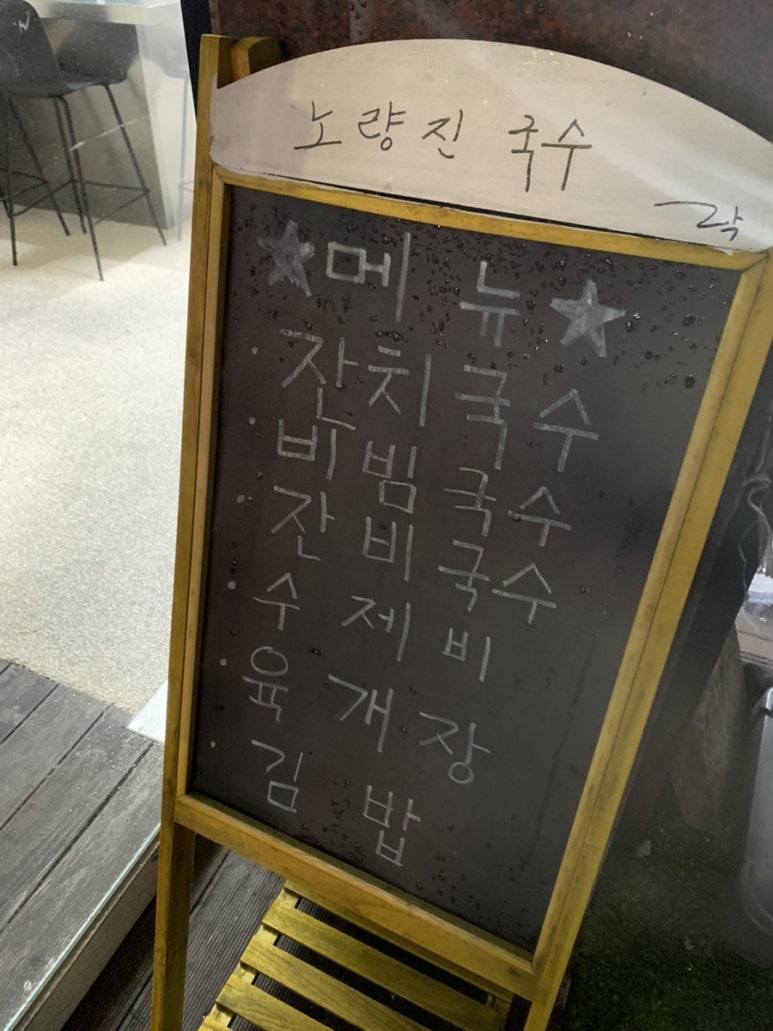 노량진 국수
락
★메뉴★
잔치국수
비빔국수
잔비국수
수제비
육개장
김밥